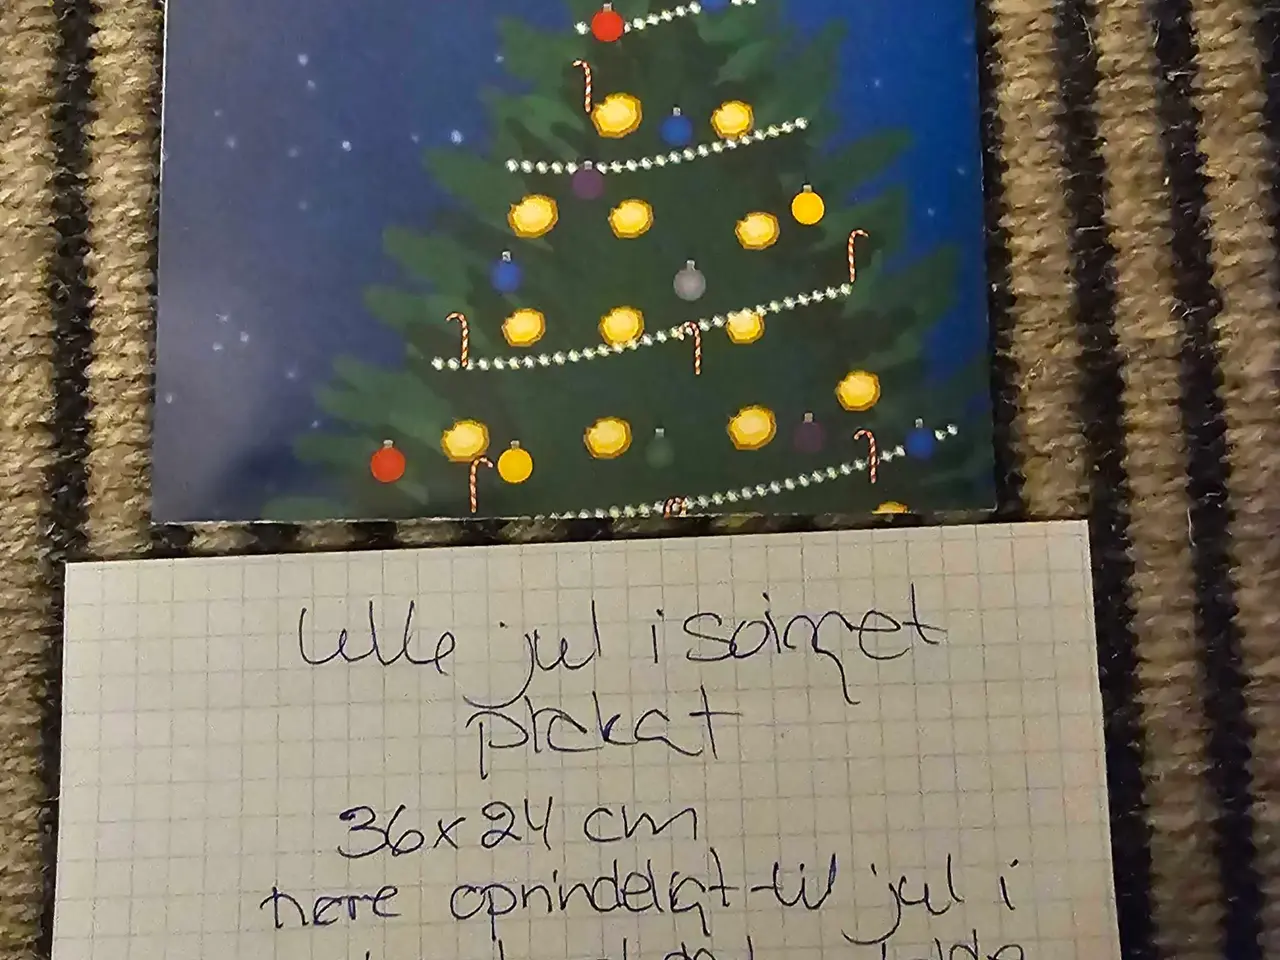 lille jul i svinget
plakat
36x24 cm
høre oprindeligt til jul i